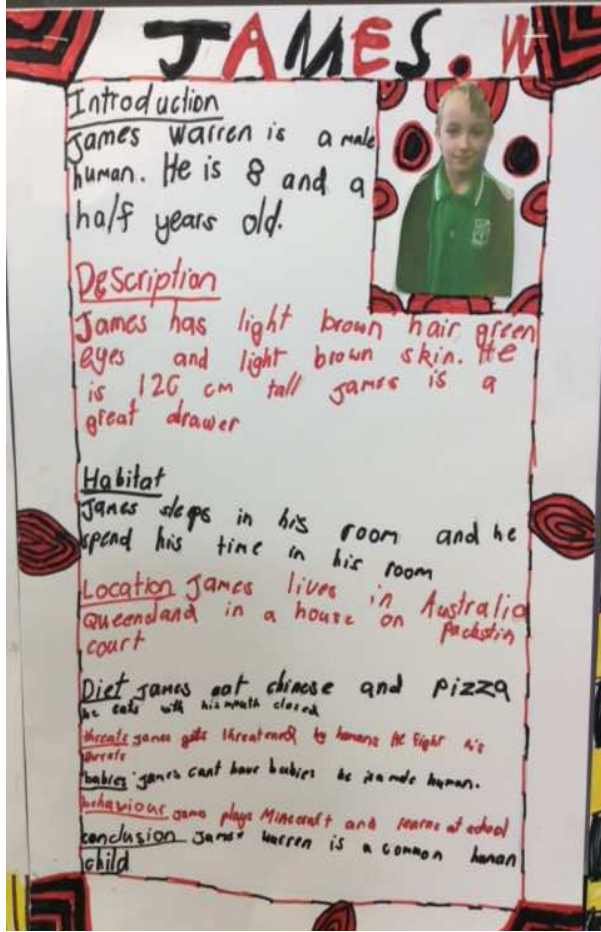 JAMES. W
Introduction
James Warren is a male
human. He is 8 and a
half years old.
Description
James has light brown hair green
eyes and light brown skin. He
is 126 cm tall James is a
great drawer
Habitat
James sleps in his room and he
spend his time in his room
Location James lives in Australia
Queenland in a house on
court
Diet James eat chinese and pizza
he eats with his mouth closed
threats James gets threatened by humans he fight his
threats
babies James cant have babies he is a male human.
behaviour James plays Minecraft and learns at school
conclusion James Warren is a common human
child